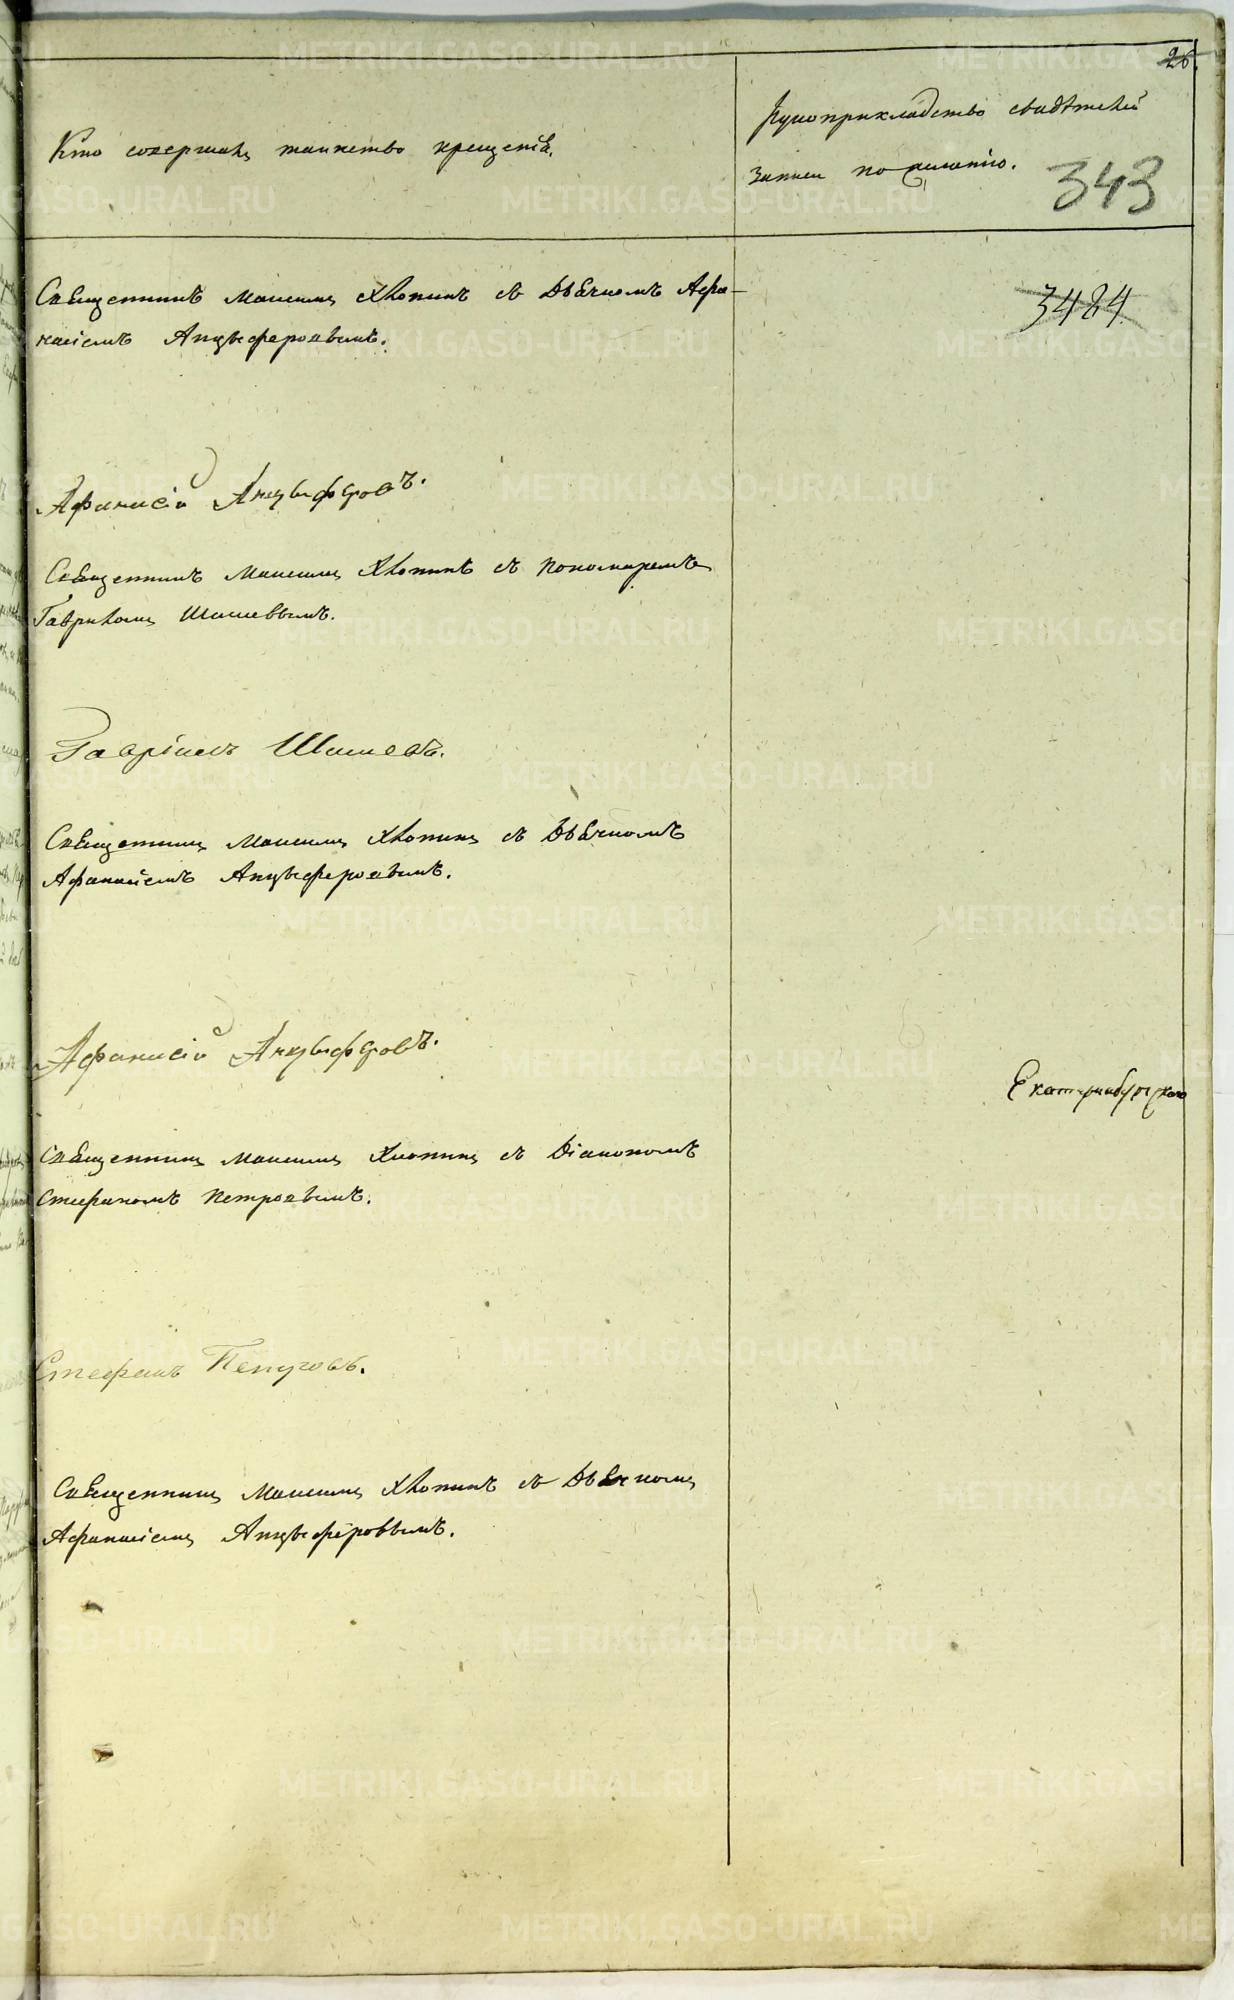 26.
Кто совершалъ таинство крещенія.
Рукоприкладство свидѣтелей
записи по желанію.
343
Священникъ Максимъ Хлопинъ съ Дьячкомъ Афа-
насіемъ Анцыферовымъ.
3484
Афанасій Анцыферовъ.
Священникъ Максимъ Хлопинъ съ пономаремъ
Гавриломъ Шишевымъ.
Гавріилъ Шишевъ.
Священникъ Максимъ Хлопинъ съ Дьячкомъ
Афанасіемъ Анцыферовымъ.
Афанасій Анцыферовъ.
Екатеринбургскаго
Священникъ Максимъ Хлопинъ съ Діакономъ
Стефаномъ Петровымъ.
Стефанъ Петровъ.
Священникъ Максимъ Хлопинъ съ Дьячкомъ
Афанасіемъ Анцыферовымъ.
METRIKI.GASO-URAL.RU